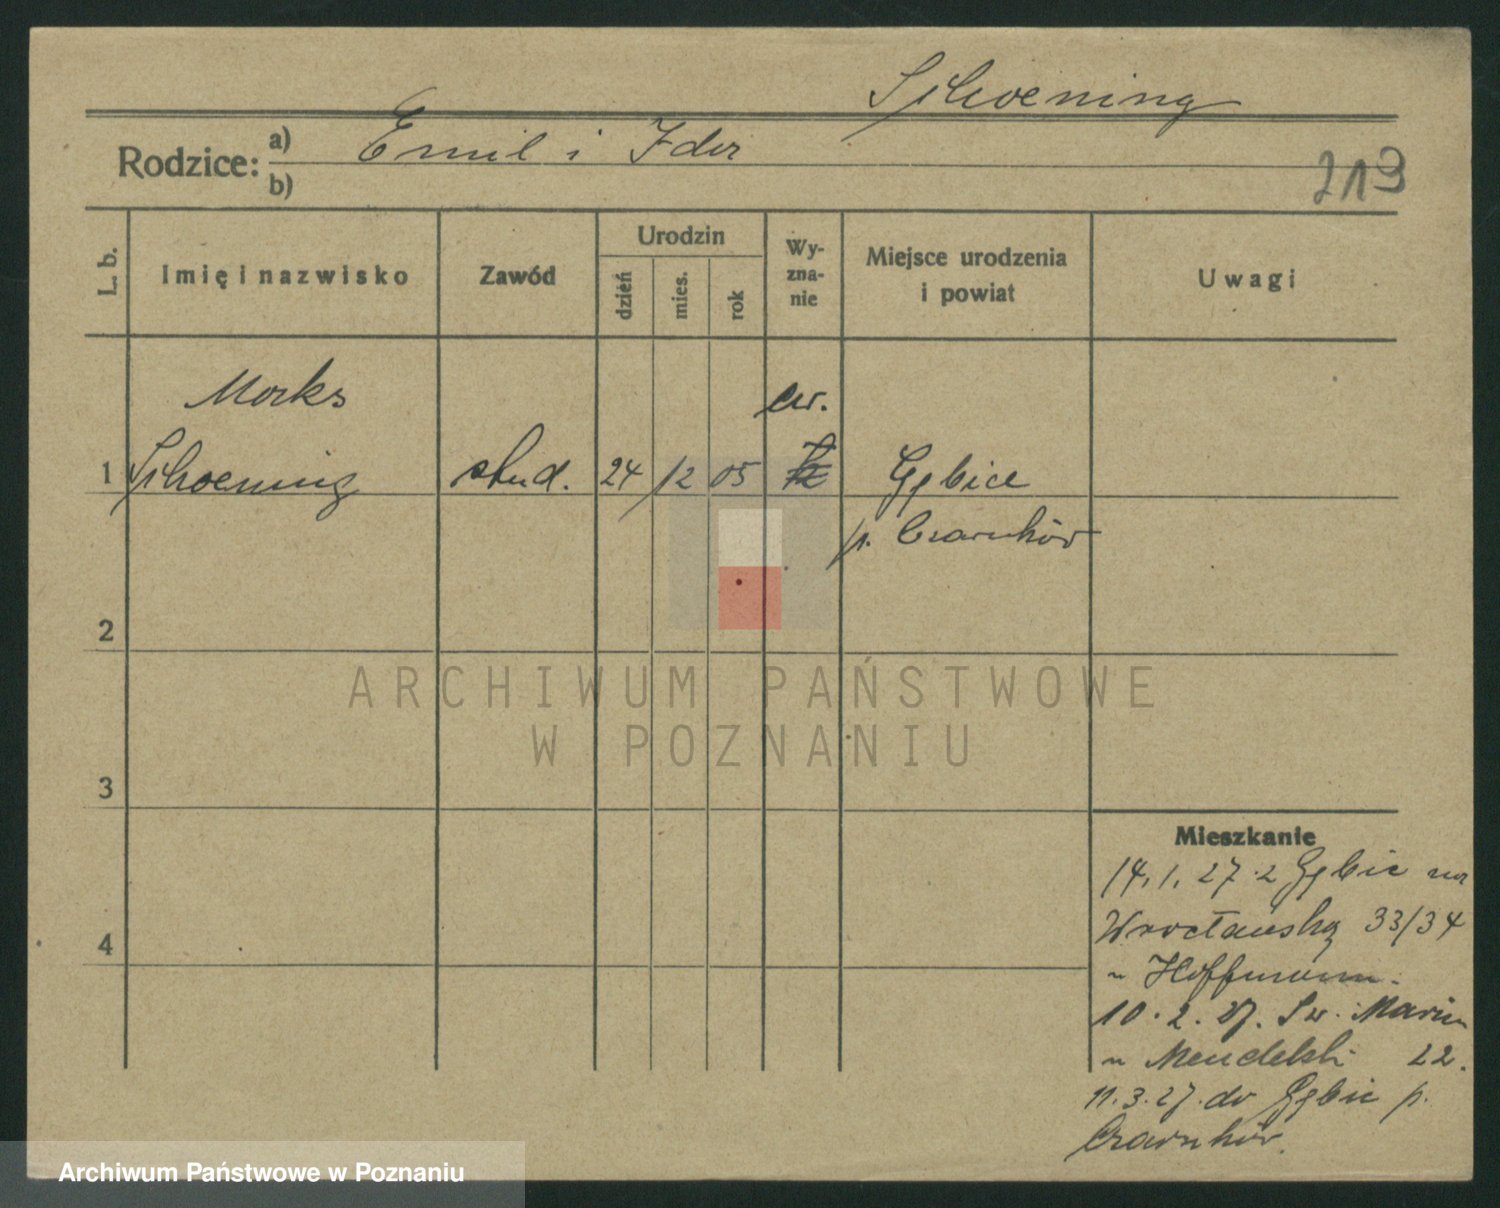 Schoening
Rodzice: a) Emil i Ida
b)
219
L. b.
Imię i nazwisko
Zawód
Urodzin
dzień
mies.
rok
Wy-
zna-
nie
Miejsce urodzenia
i powiat
Uwagi
Marks
ew.
1 Schoening stud. 24 12 05 Gębice
p. Czarnków
2
ARCHIWUM PAŃSTWOWE
W POZNANIU
3
Mieszkanie
14.1.27 z Gębic na
4 Wrocławską 33/34
u Hoffmann.
10.2.27. Św. Marcin
u Mendelski 22.
11.3.27. do Gębic p.
Czarnków.
Archiwum Państwowe w Poznaniu